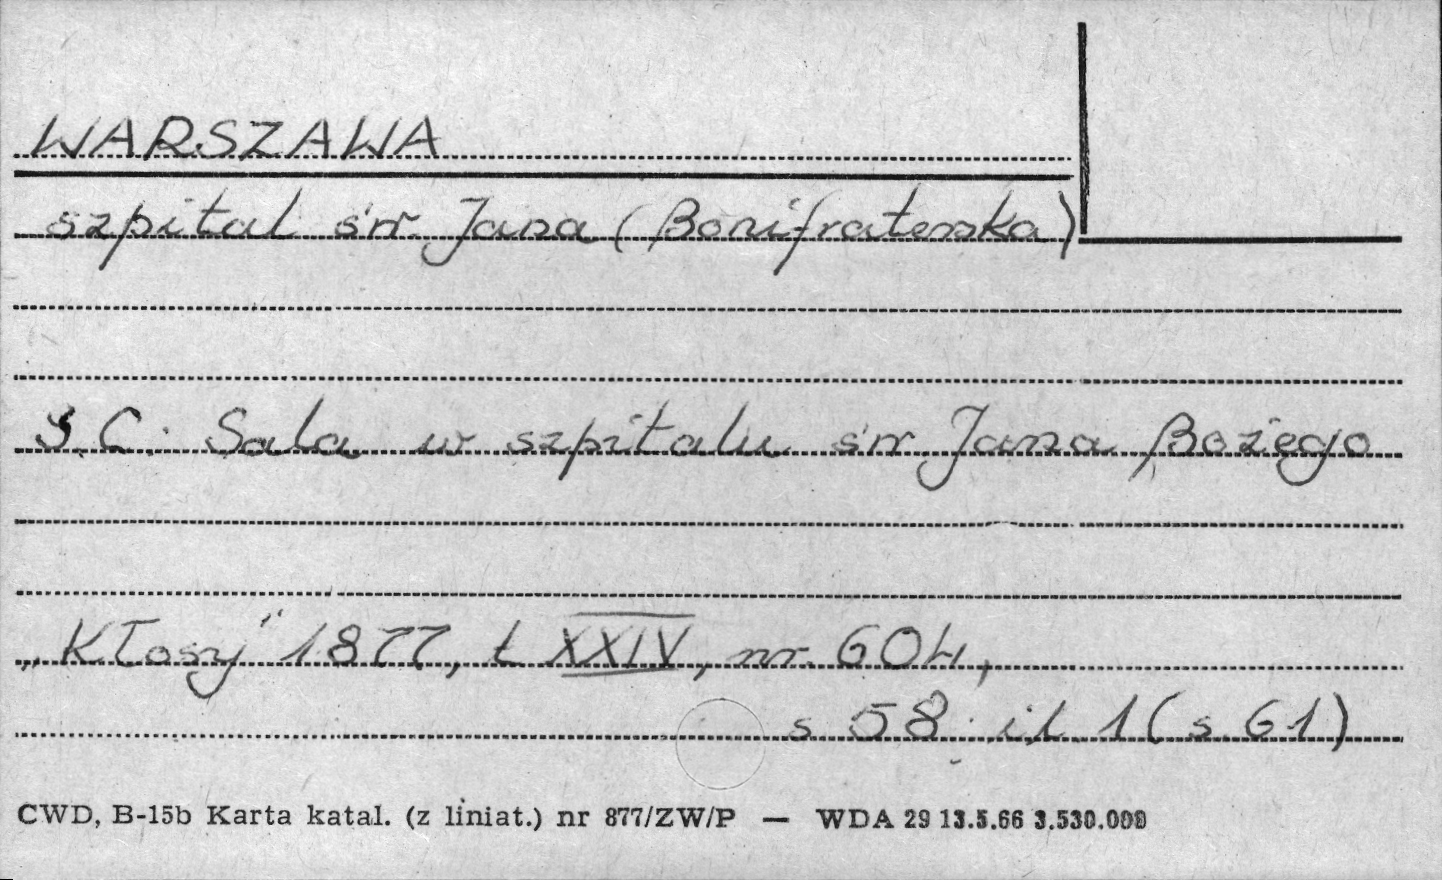 WARSZAWA
szpital św. Jana (Bonifraterska)
S.C. Sala w szpitalu św. Jana Bożego
„Kłosy" 1877, t. XXIV, nr. 604,
s. 58. il. 1 (s. 61)
CWD, B-15b Karta katal. (z liniat.) nr 877/ZW/P — WDA 29 13.5.66 3.530.000